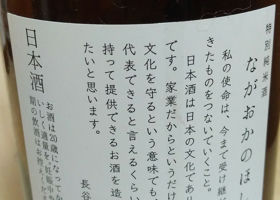 特別純米酒
ながおかのほし
私の使命は、今まで受け継
きたものをつないでいくこと。
日本酒は日本の文化であり
です。家業だからというだけ
文化を守るという意味でも、
代表できると言えるくらい
持って提供できるお酒を造
たいと思います。
長谷
日本酒
お酒は20歳になってか
いしく適量を。妊娠中や
期の飲酒はお控えくだ